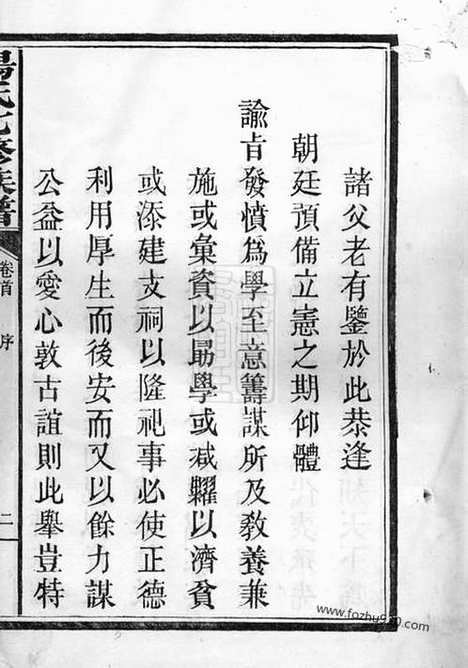 諸父老有鑒於此恭逢
朝廷預備立憲之期仰體
諭旨發憤為學至意籌謀所及敎養兼
施或彙資以勗學或減糶以濟貧
或添建支祠以隆祀事必使正德
利用厚生而後安而又以餘力謀
公益以愛心敦古誼則此舉豈特
楊氏七修族譜
卷首
序
二
www.fozhu920.com